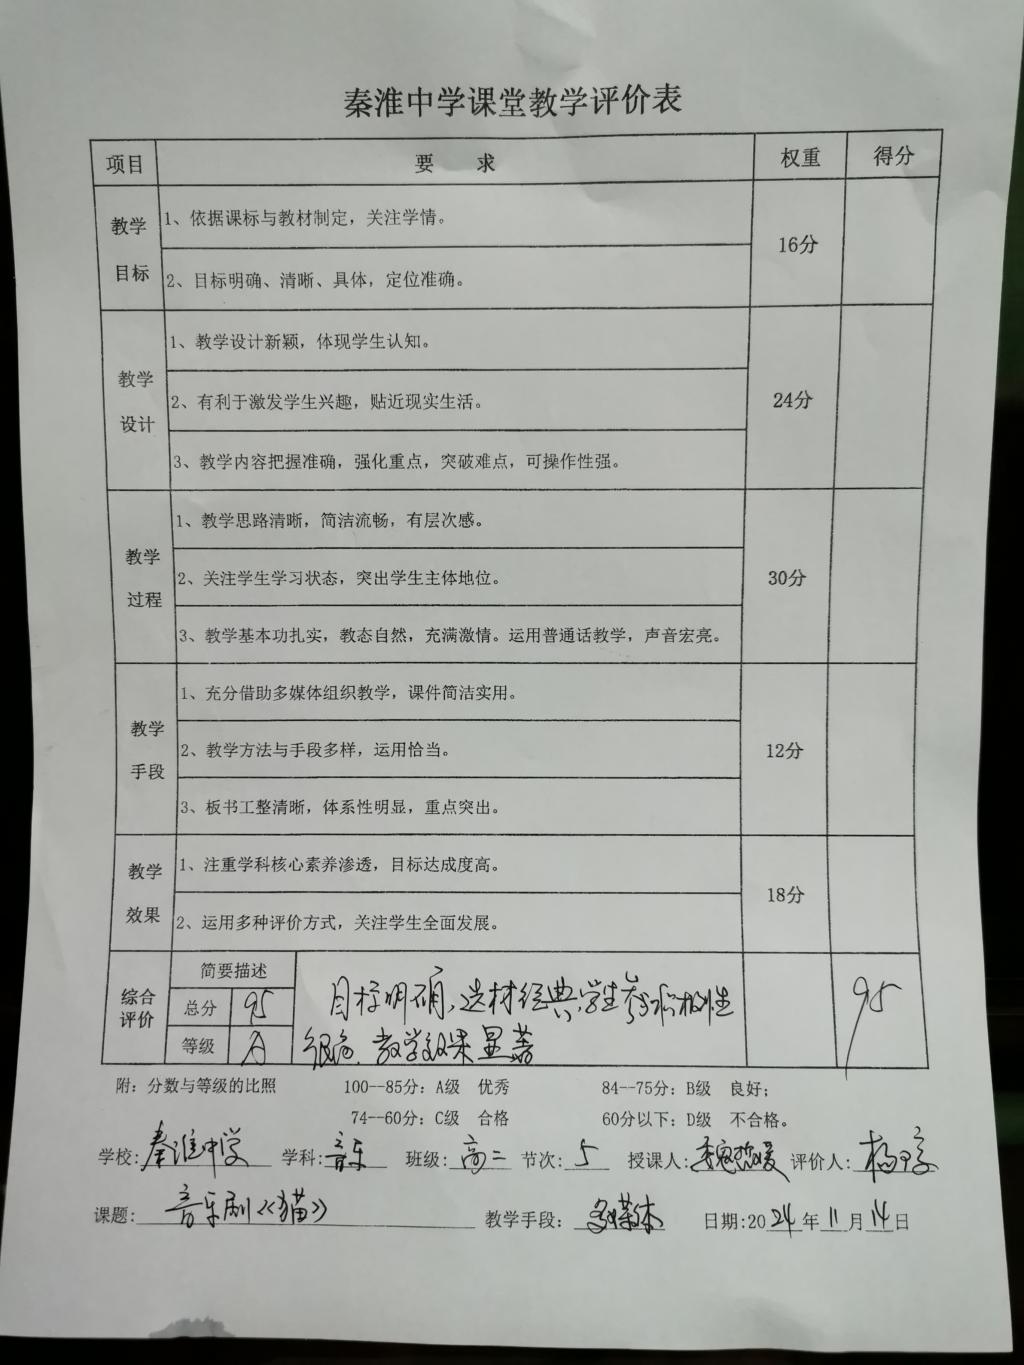 秦淮中学课堂教学评价表
项目 要 求 权重 得分
教学目标
1、依据课标与教材制定，关注学情。
2、目标明确、清晰、具体，定位准确。
16分
教学设计
1、教学设计新颖，体现学生认知。
2、有利于激发学生兴趣，贴近现实生活。
3、教学内容把握准确，强化重点，突破难点，可操作性强。
24分
教学过程
1、教学思路清晰，简洁流畅，有层次感。
2、关注学生学习状态，突出学生主体地位。
3、教学基本功扎实，教态自然，充满激情。运用普通话教学，声音宏亮。
30分
教学手段
1、充分借助多媒体组织教学，课件简洁实用。
2、教学方法与手段多样，运用恰当。
3、板书工整清晰，体系性明显，重点突出。
12分
教学效果
1、注重学科核心素养渗透，目标达成度高。
2、运用多种评价方式，关注学生全面发展。
18分
综合评价
简要描述
总分 95
等级 A
目标明确，选材经典，学生参与积极性
很高，教学效果显著
95
附：分数与等级的比照 100--85分：A级 优秀 84--75分：B级 良好；
74--60分：C级 合格 60分以下：D级 不合格。
学校：秦淮中学 学科：音乐 班级：高二 节次：5 授课人： 评价人：
课题：音乐剧《猫》 教学手段：多媒体 日期：2024年11月14日